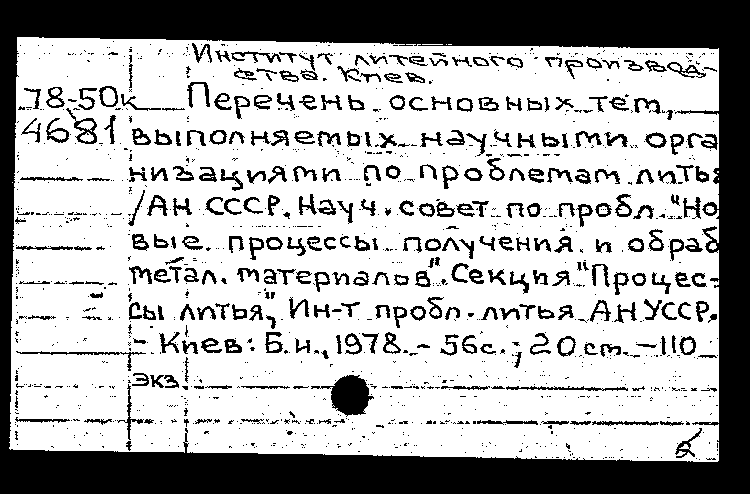 Институт литейного производ-
ства. Киев.
78-50к Перечень основных тем,
4681 выполняемых научными орга
низациями по проблемам литья
/АН СССР. Науч. совет по пробл. "Но
вые. процессы получения и обраб
метал. материалов". Секция "Процес-
сы литья", Ин-т пробл. литья АН УССР.
- Киев: Б.и., 1978. - 56с.; 20 cm. - 110
экз.